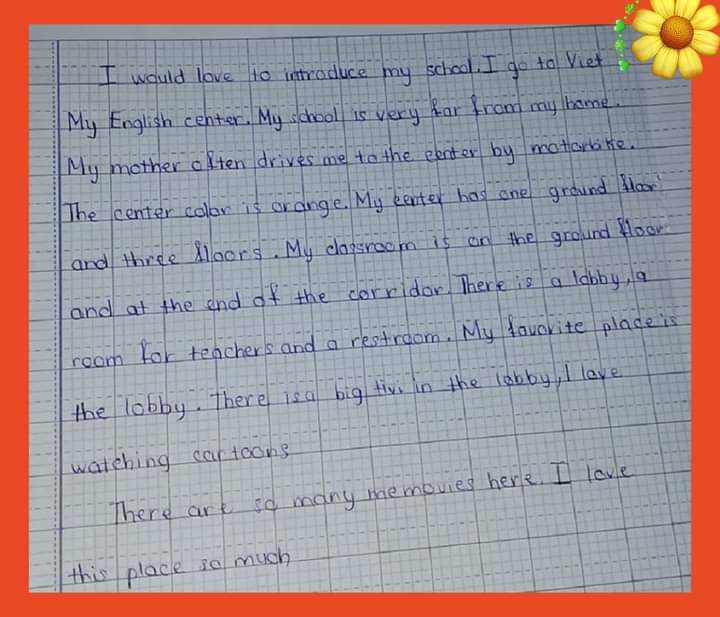 I would love to introduce my school. I go to Viet
My English center. My school is very far from my home.
My mother often drives me to the center by motorbike.
The center color is orange. My center has one ground floor
and three floors. My classroom is on the ground floor
and at the end of the corridor. There is a lobby, a
room for teachers and a restroom. My favorite place is
the lobby. There is a big tivi in the lobby, I love
watching cartoons
There are so many memovies here. I love
this place so much